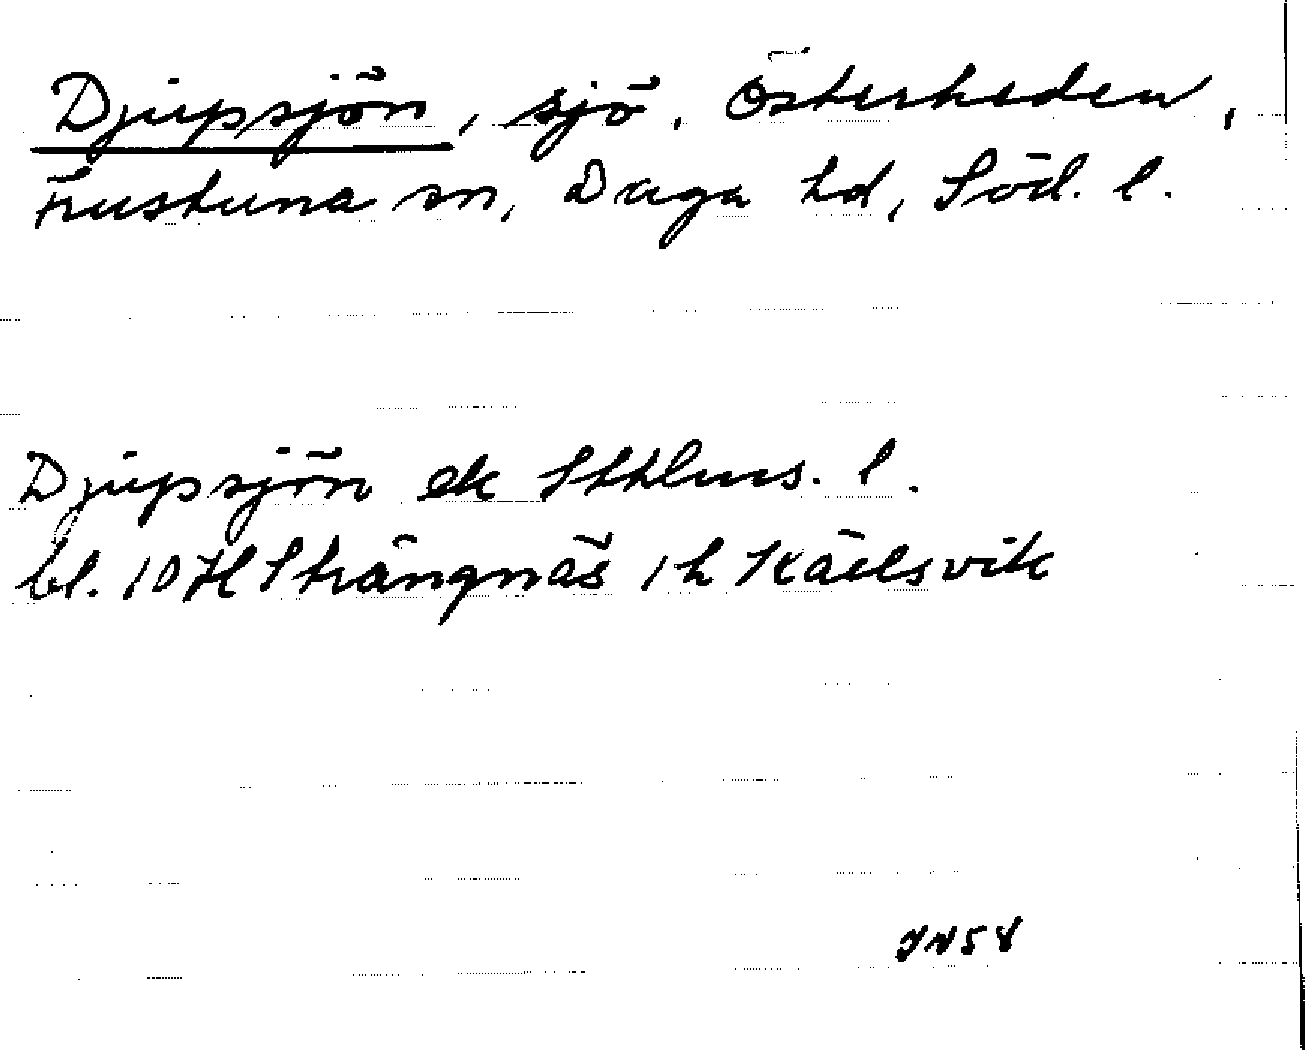 Djupsjön, sjö, Österheden,
Frustuna sn, Daga hd, Söd. l.
Djupsjön ek Sthlms. l.
bl. 10 H Strängnäs 1 h Kälsvik